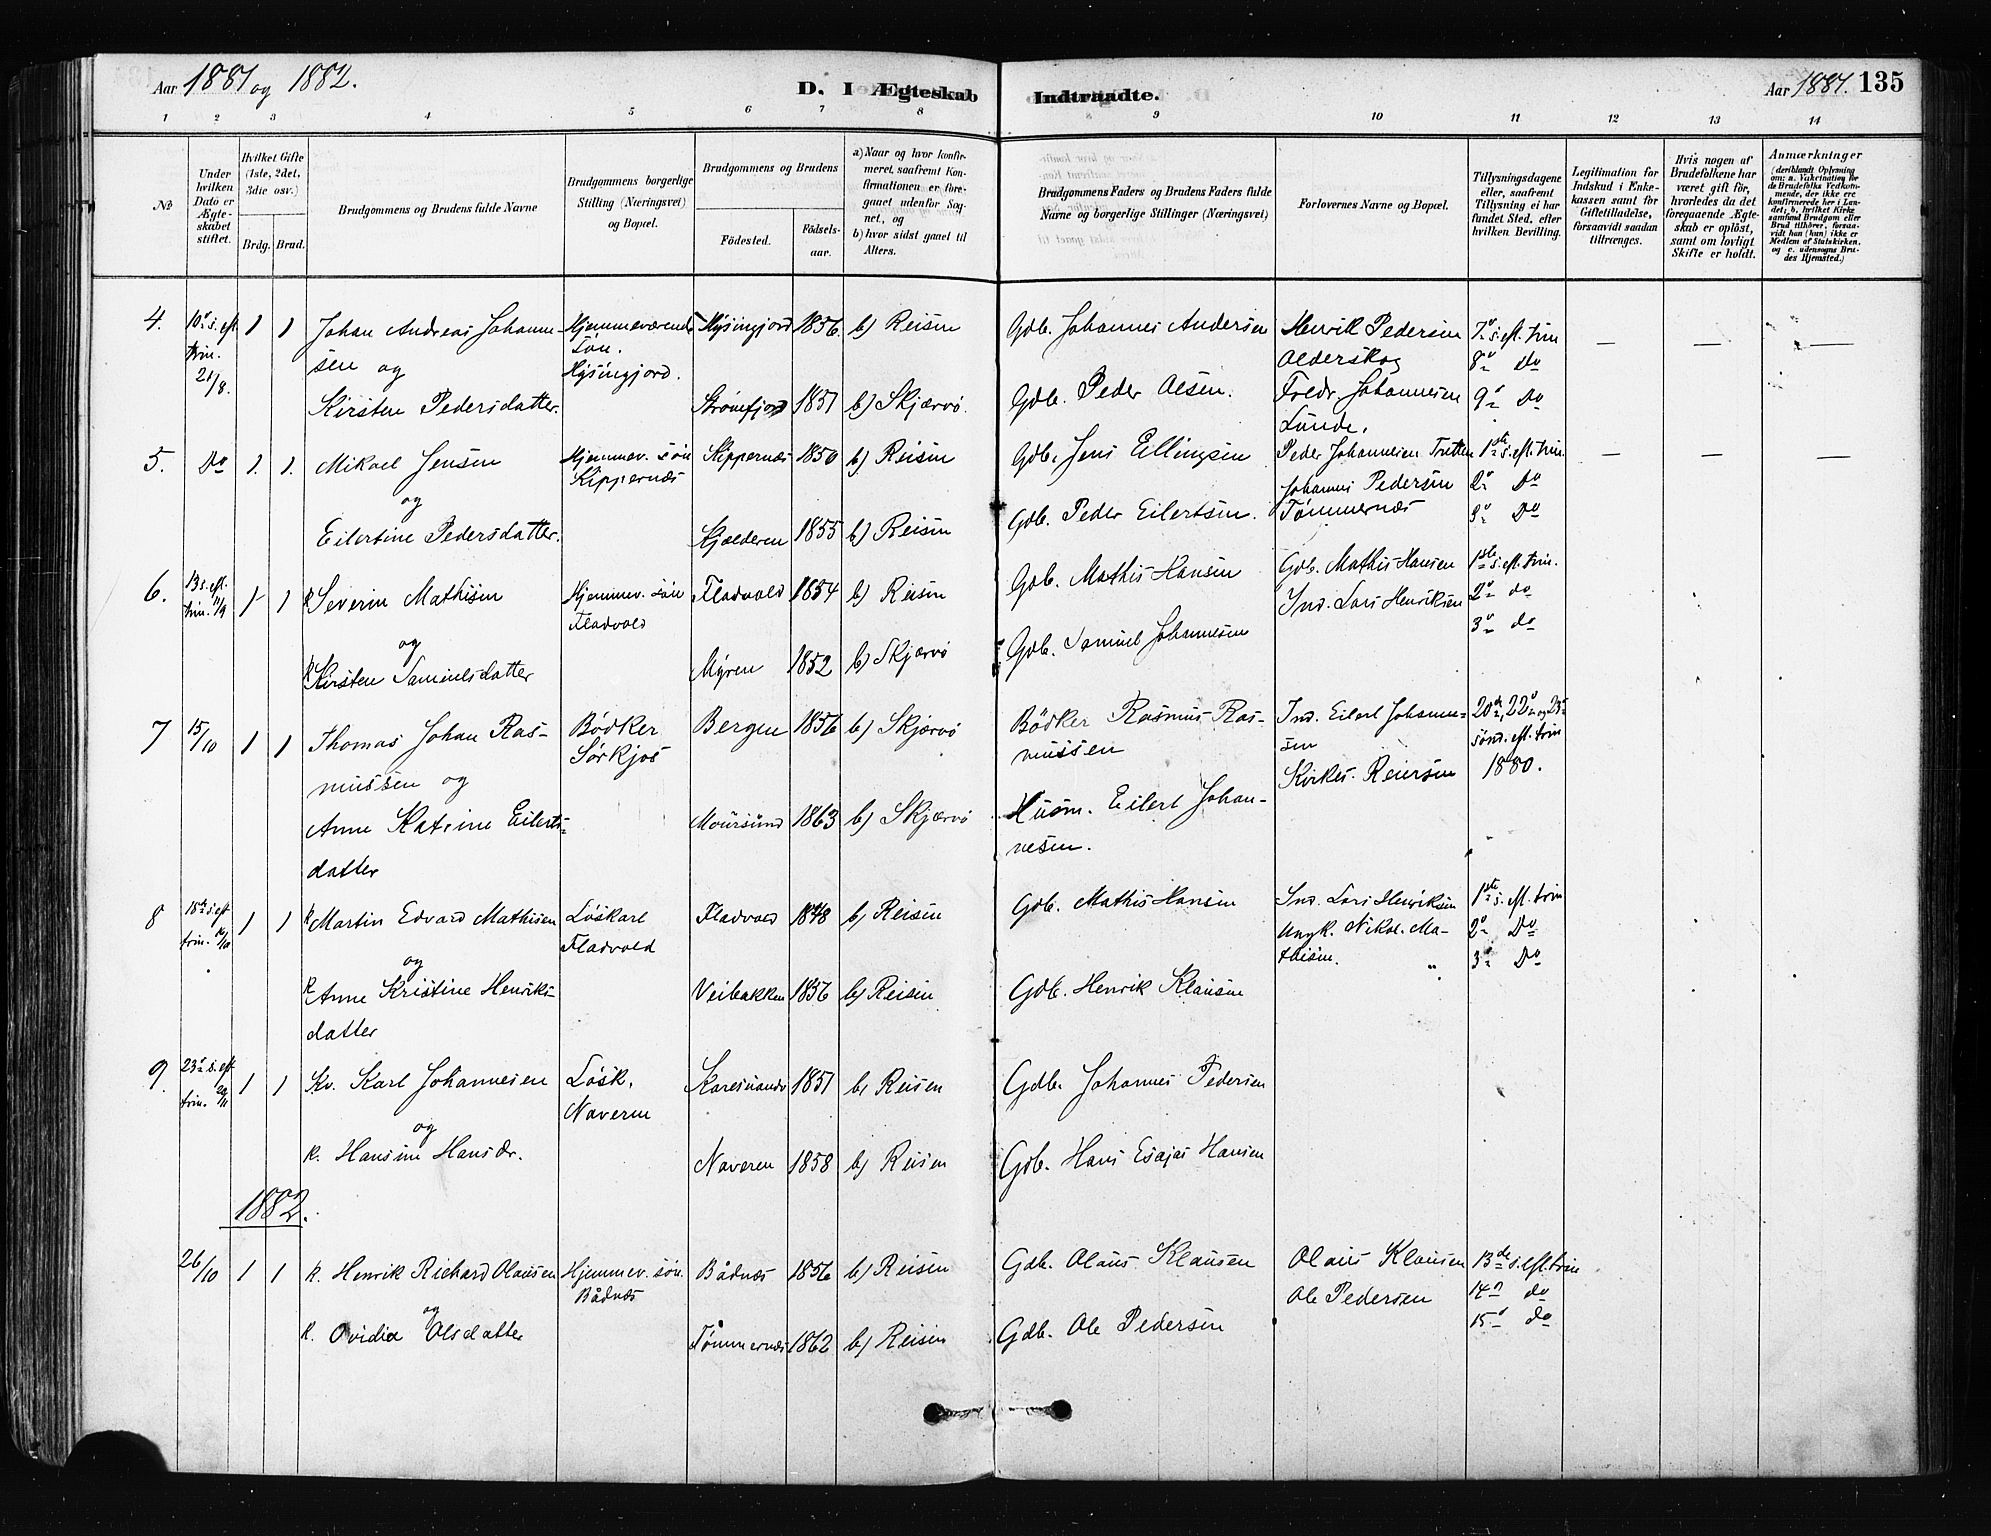 Aar 1881 og 1882.
D. I Ægteskab Indtraadte.
Aar 1881. 135
1 2 3 4 5 6 7 8 8 9 10 11 12 13 14
No
Under hvilken Dato er Ægteskabet stiftet.
Hvilket Gifte (1ste, 2det, 3die osv.)
Brdg. Brud.
Brudgommens og Brudens fulde Navne
Brudgommens borgerlige Stilling (Næringsvei) og Bopæl.
Brudgommens og Brudens
Födested.
Födselsaar.
a) Naar og hvor konfirmeret, saafremt Konfirmationen er foregaaet udenfor Sognet, og
b) hvor sidst gaaet til Alters.
Brudgommens Faders og Brudens Faders fulde Navne og borgerlige Stillinger (Næringsvei)
Forlovernes Navne og Bopæl.
Tillysningsdagene eller, saafremt Tillysning ei har fundet Sted, efter hvilken Bevilling.
Legitimation for Indskud i Enkekassen samt for Giftetilladelse, forsaavidt saadan tiltrænges.
Hvis nogen af Brudefolkene har været gift för, hvorledes da det foregaaende Ægteskab er oplöst, samt om lovligt Skifte er holdt.
Anmærkninger
4. 10de s. eft. trin. 21/8. 1 1 Johan Andreas Johannesen og Hjemmeværende Søn. 1856. b) Reisen Gdb. Johannes Andersen Henrik Pedersen Olderskog 7de s. eft. trin — — —
8de Do
Kirsten Pedersdatter. Strømfjord 1851 b) Skjærvö. Gdb. Peder Olsen. Fredr. Johannesen Lunde. 9de Do
5. Do 1. 1. Mikael Jensen Hjemmev. sön Kippernæs Kippernæs 1850 b) Reisen Gdb. Jens Ellingsen Peder Johannesen Tretten 1ste s. eft. trin. — — —
og Johannes Pedersen 2de Do
Eilertine Pedersdatter. Kjælderen 1855 b) Reisen Gdb. Peder Eilertsen. Tömmernæs 3de Do
6. 13 s. eft. trin. 11/9 1 1 k Severin Mathisen Hjemmev. sön Fladvold Fladvold 1854 b) Reisen Gdb. Mathis Hansen Gdb. Mathis Hansen 1ste s. eft. trin.
og Ind. Lars Henriksen 2de do
k Kirsten Samuelsdatter Myren 1852 b) Skjærvö Gdb. Samuel Johannesen 3de do
7 15/10 1 1 Thomas Johan Rasmussen og Bödker Sörkjos Bergen 1856 b) Skjærvö Bödker Rasmus Rasmussen Ind. Eilert Johannesen 20de, 22de og 23de sönd. eft. trin 1880.
Anne Katrine Eilertsdatter Moursund 1863 b) Skjærvö Husm. Eilert Johannesen. Kirkes. Reiersen
8 18de s. eft. trin. 16/10 1 1 k Martin Edvard Mathisen Löskarl Fladvold Fladvold 1848 b) Reisen Gdb. Mathis Hansen Ind. Lars Henriksen 1ste s. eft. trin
og Ungk. Nikol. Mathisen. 2de Do
k Anne Kristine Henriksdatter Veibakken 1856 b) Reisen Gdb. Henrik Klausen 3de Do
9. 23de s. eft. trin. 20/11 1 1 Kv. Karl Johannesen Lösk. Naveren Karesuando 1851 b) Reisen Gdb. Johannes Pedersen
og
k. Hansine Hansdr. Naveren 1858 b) Reisen Gdb. Hans Esajas Hansen
1882.
26/10 1 1 k. Henrik Richard Olausen Hjemmev. sön. Bådnæs Bådnæs 1856 b) Reisen Gdb. Olaus Klausen Olaus Klausen 13de s. eft. trin
og Ole Pedersen 14de do
k. Ovidia Olsdatter Tömmernæs 1862 b) Reisen Gdb. Ole Pedersen 15de do